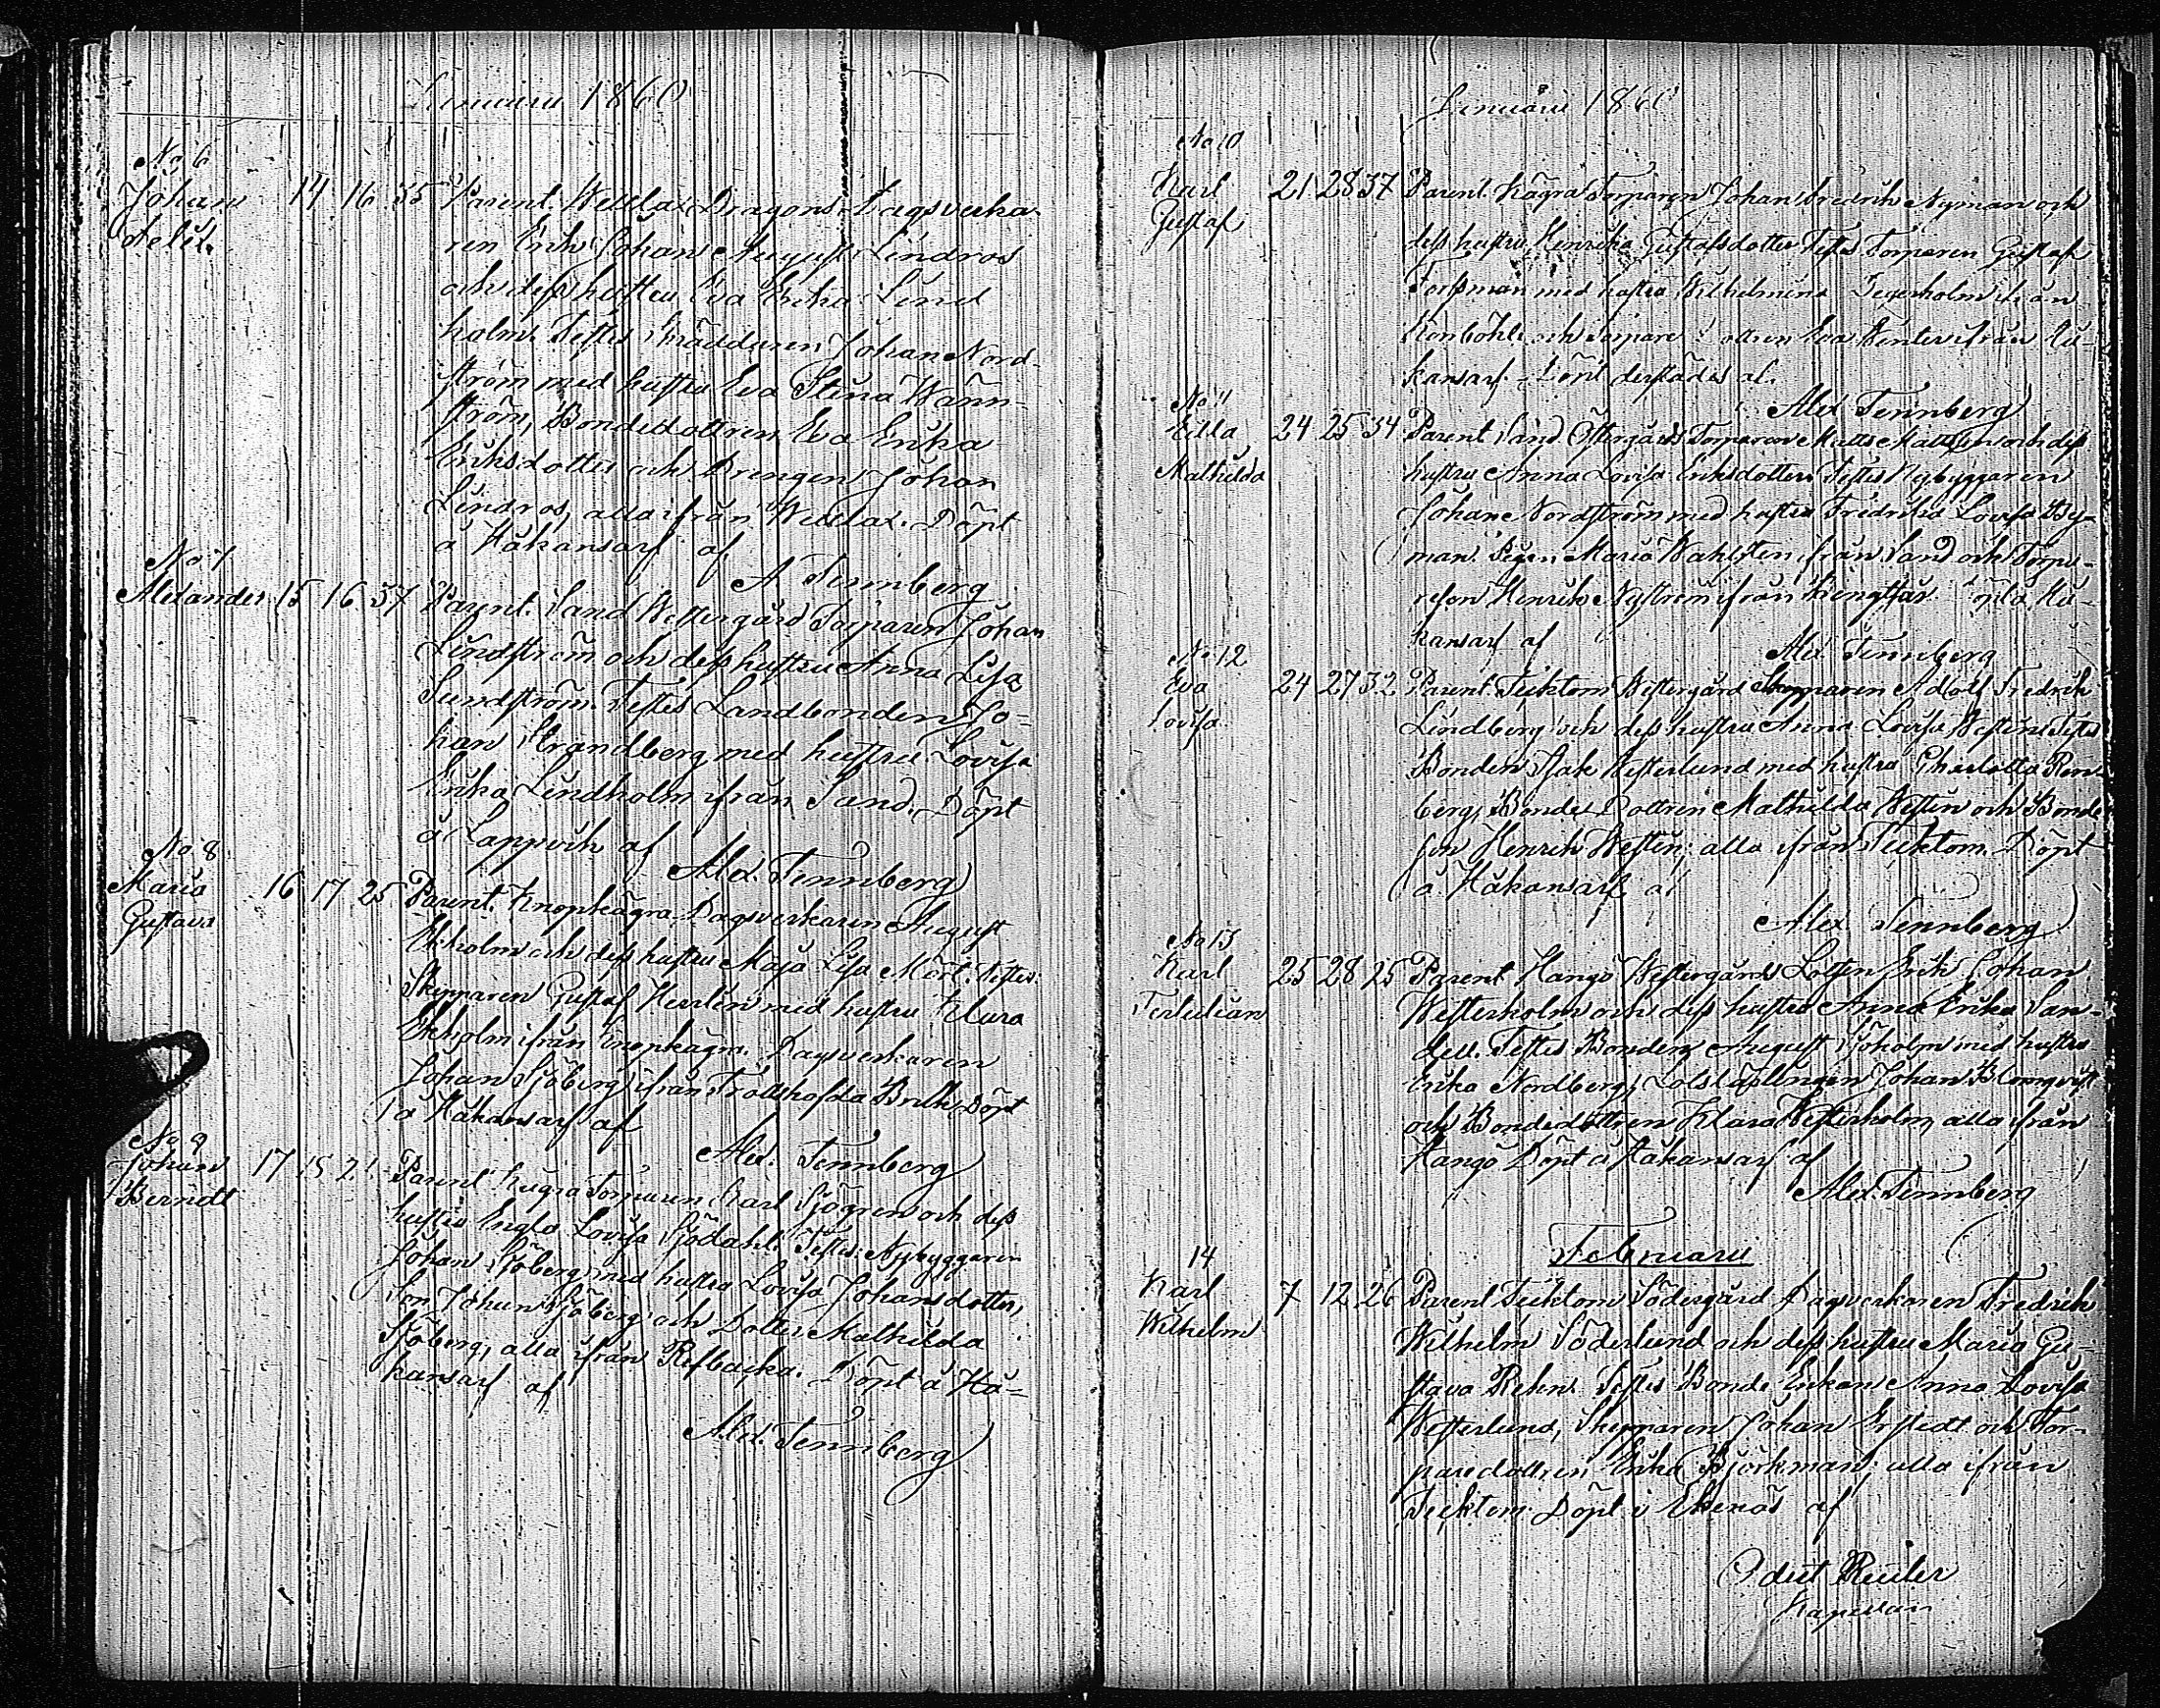 Januarii 1860
No 6
Johan 14 16 35 Parent. Wettlax Dragons Dagsverka-
Felix ren Erik Johan August Lindros
och dess hustru Eva Erika Lind
holm. Testes: Johan Nord-
ström med hustru Eva Stina Wänn-
ström, Bondedottren Eva Erika
Eriksdotter och Drengen Johan
Lindros, alla ifrån Wettlax. Döpt
å Håkansarf af
A Tennberg
No 7
Alexander 15 16 37 Parent. Sand Westergård Torparen Johan
Lindström och dess hustru Anna Lisa
Sundström. Testes Landbonden Jo-
han Strandberg med hustru Lovisa
Erika Lindholm ifrån Sand. Döpt
å Lappvik af
Alex. Tennberg
No 8
Maria 16 17 25 Parent. Knopkägra Dagsverkaren August
Gustava Ekholm och dess hustru Maja Lisa Mört. Testes
Skepparen Gustaf Herrlin med hustru Klara
Ekholm ifrån Knopkägra. Dagsverkaren
Johan Sjöberg ifrån Trollshofda Bruk. Döpt
å Håkansarf af
Alex. Tennberg
No 9
Johan 17 21 Parent Kägra Torparen Karl Sjögren och dess
Berndt hustru Engla Lovisa Sjödahl. Testes: Nybyggaren
Johan Sjöberg med hustru Lovisa Johansdotter,
Son Johan Sjöberg och Dotter Mathilda
Sjöberg, alla ifrån Refbacka. Döpt å Hå-
kansarf af
Alex. Tennberg
Januarii 1860
No 10
Karl 21 28 37 Parent. Kägra Torparen Johan Fredrik Nyman och
Gustaf dess hustru Henrika Gustafsdotter Testes Torparen Gustaf
Forsman med hustru Wilhelmina Segerholm ifrån
och Torpare dottren Eva Wenter ifrån Hå-
kansarf. Döpt derstädes af.
Alex Tennberg
No 11
Edla 24 25 34 Parent Sand Östergårds Torparen Matts Mattsson och dess
Mathilda hustru Anna Lovisa Eriksdotter Testes Nybyggaren
Johan Nordström med hustru Fredrika Lovisa Ny-
man. Pigan Maria Wahlsten ifrån Sand och Torpa-
reson Henrik Nyström ifrån Döpt å Hå-
kansarf af
Alex Tennberg
No 12
Eva 24 27 32 Parent. Tecktom Westergård Skepparen Adolf Fredrik
Lovisa Lindberg och dess hustru Anna Lovisa Westin Testes
Bonden Isak Westerlund med hustru Charlotta Ren-
berg, Bonde Dottren Mathilda Westin och Bonde
son Henrik Westin, alla ifrån Tecktom. Döpt
å Håkansarf af
Alex Tennberg
No 13
Karl 25 28 25 Parent Hangö Westergårds Lotsen Erik Johan
Tertulian Westerholm och dess hustru Anna Erika San-
dell. Testes Bonden August Sjöholm med hustru
Erika Nordberg, Lotslärlingen Johan Blomqvist
och Bondedottren Klara Westerholm, alla ifrån
Hangö Döpt å Håkansarf af
Alex. Tennberg
Februarii
14
Karl 7 12 26 Parent Tecktom Södergård Dagsverkaren Fredrik
Wilhelm Wilhelm Söderlund och dess hustru Maria Gu-
stava Rehn. Testes Bonde Enkan Anna Lovisa
Westerlund, Skepparen Johan Erstedt och Tor-
paredottren Erika Björkman, alla ifrån
Tecktom. Döpt i Ekenäs af
Reuter
Kapellan